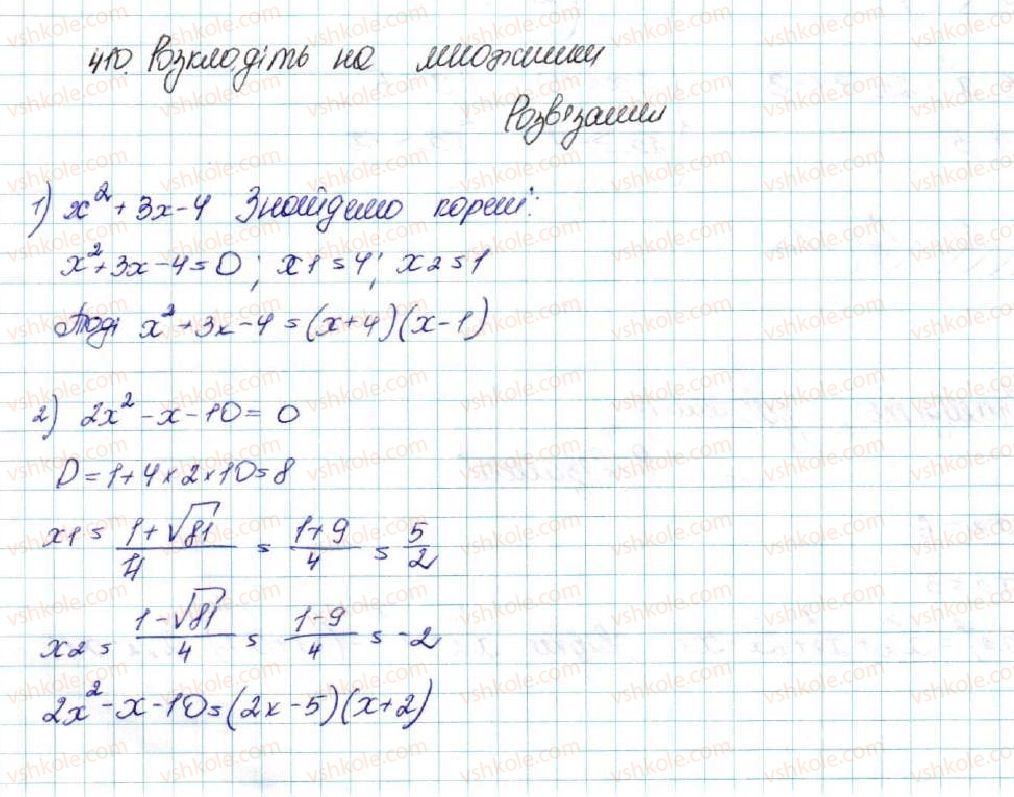 410. Розкладіть на множники
Розв'язання
1) x² + 3x - 4 Знайдемо корені:
x² + 3x - 4 = 0; x1 = 4; x2 = 1
Тоді x² + 3x - 4 = (x + 4)(x - 1)
2) 2x² - x - 10 = 0
D = 1 + 4 × 2 × 10 = 8
x1 = (1 + √81)/4 = (1 + 9)/4 = 5/2
x2 = (1 - √81)/4 = (1 - 9)/4 = -2
2x² - x - 10 = (2x - 5)(x + 2)
vshkole.com